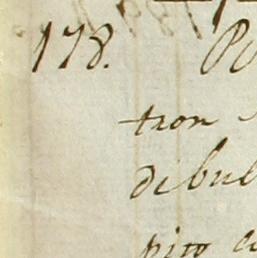 178. Po
tron
dibul
pito a